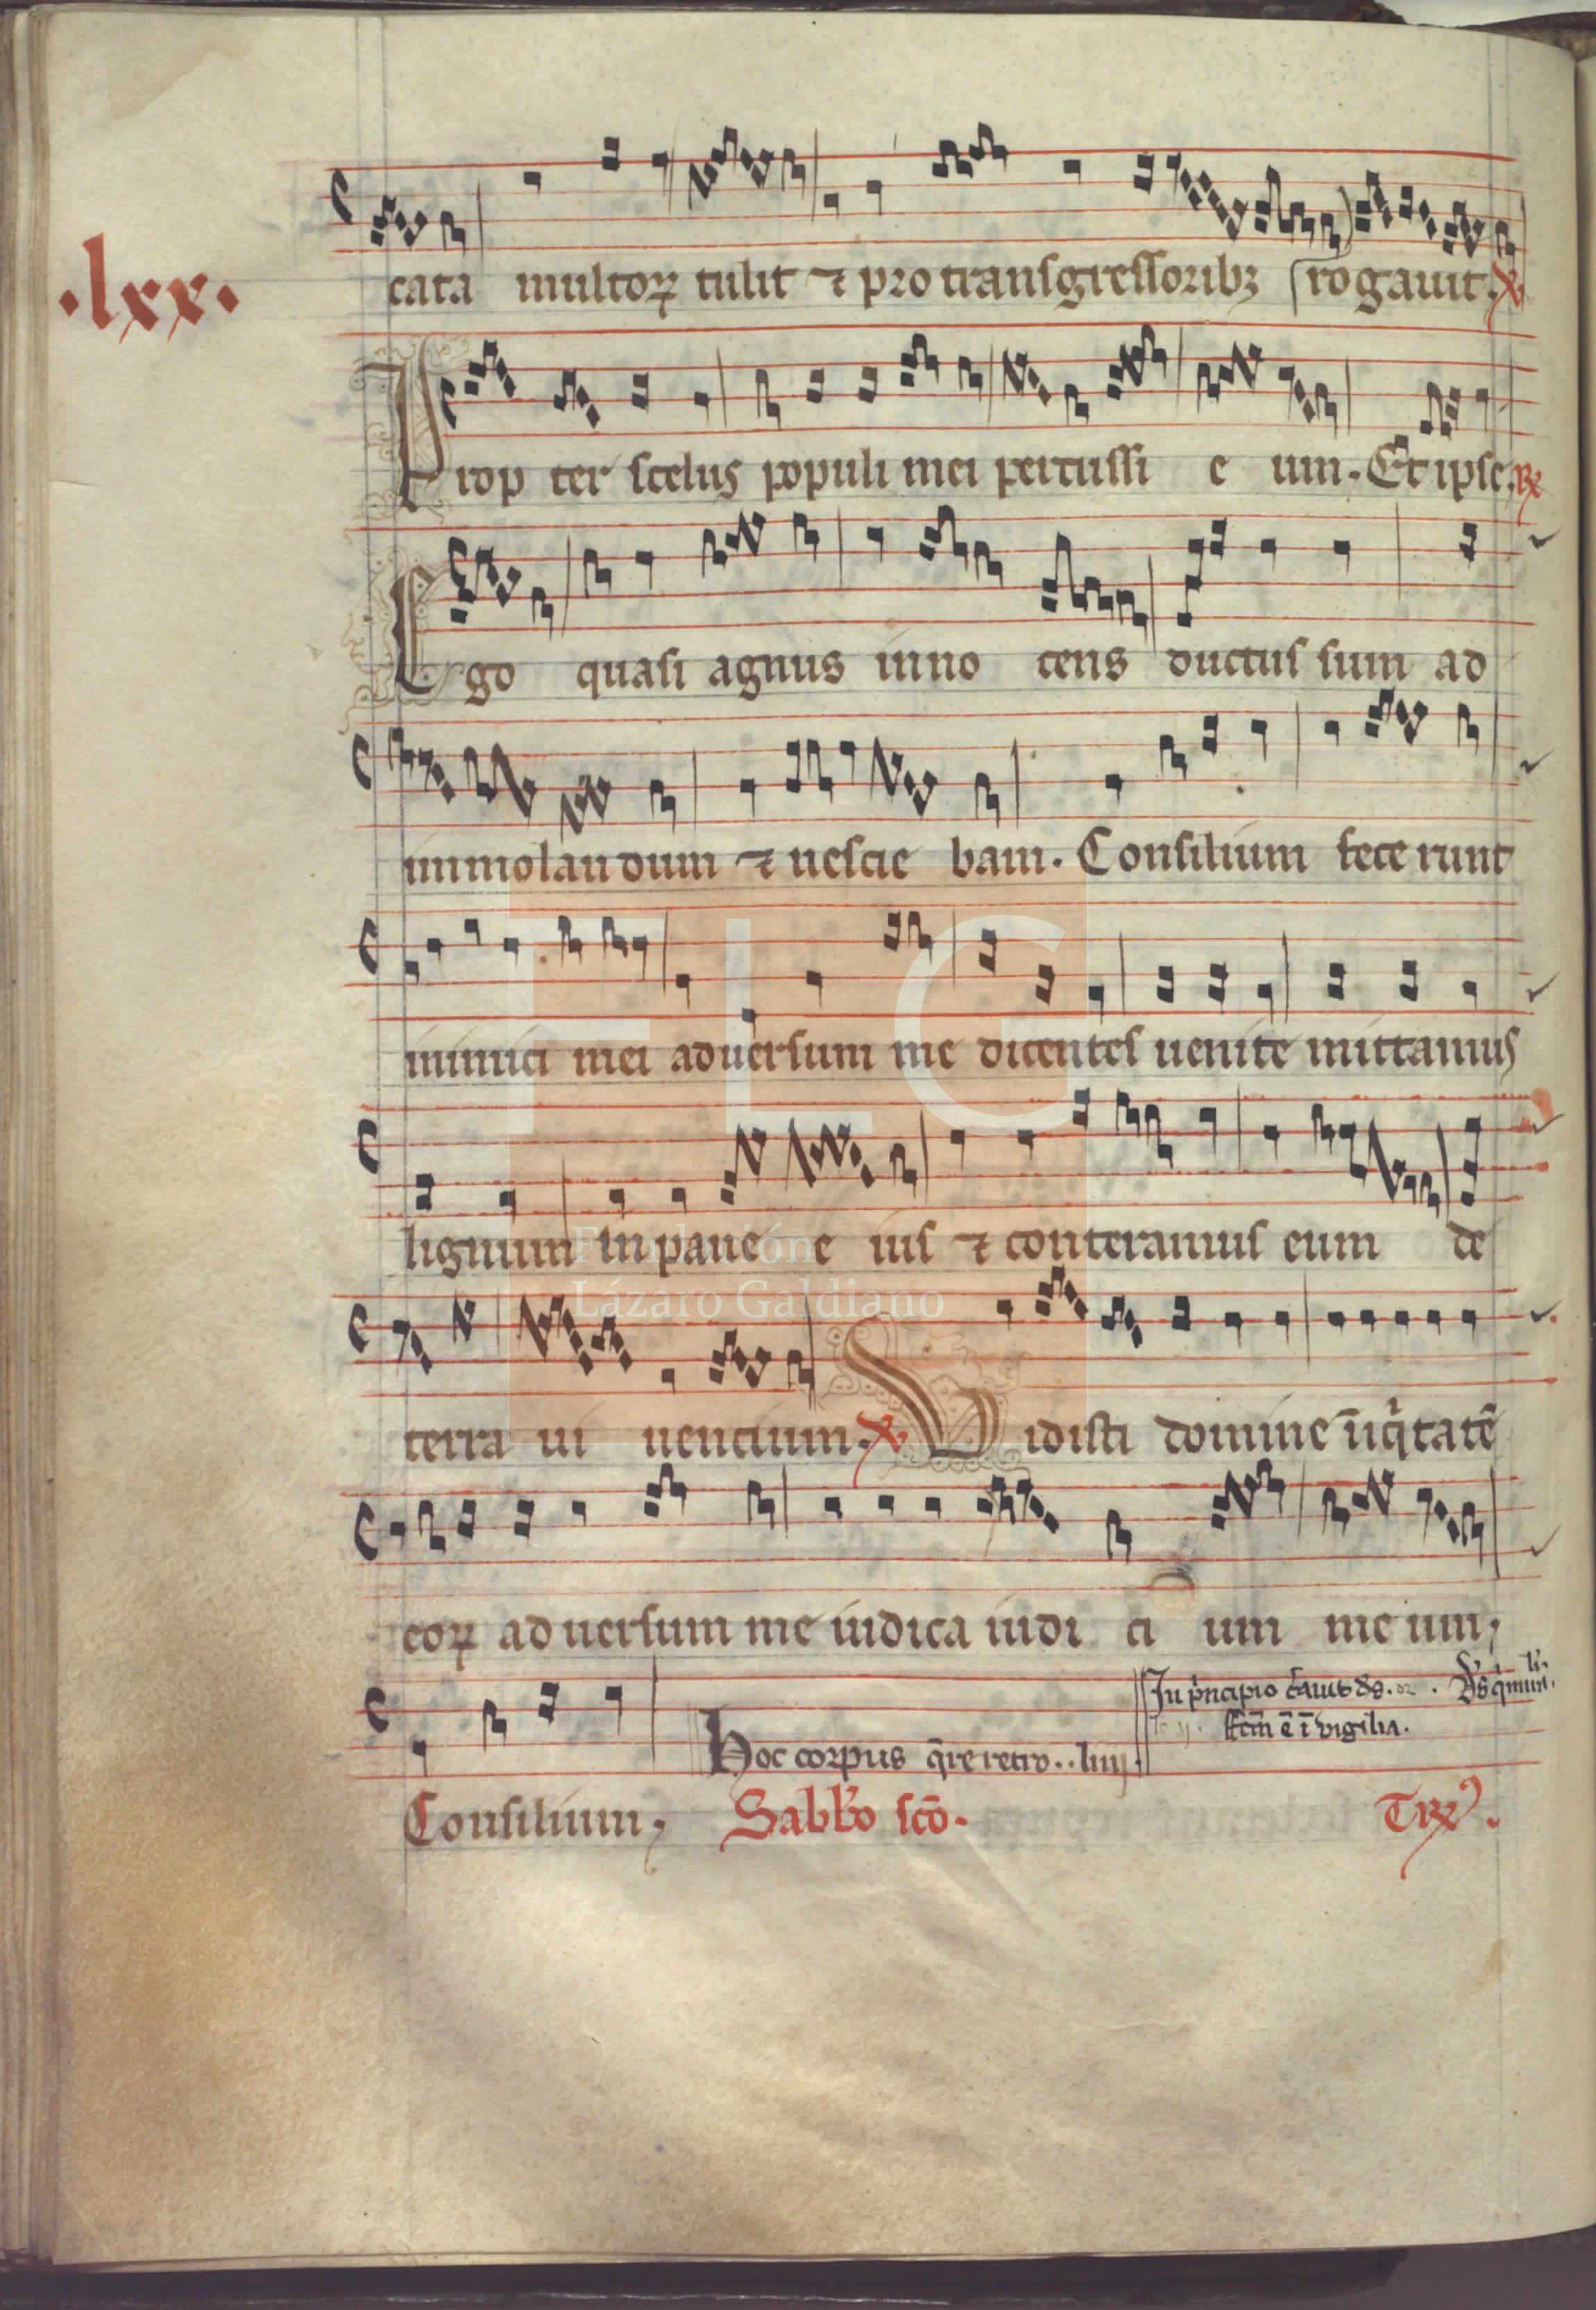 ·lxx·
cata multoꝝ tulit ⁊ pro transgressoribꝫ rogauit. ℣
Prop ter scelus populi mei percussi e um. Et ipse. ℟
Ego quasi agnus inno cens ductus sum ad
immolan dum ⁊ nescie bam. Consilium fece runt
inimici mei aduersum me dicentes uenite mittamus
lignum in pane e ius ⁊ conteramus eum de
terra ui uencium. ℣ Vidisti domine iniq̅tatē
eoꝝ ad uersum me iudica iudi ci um me um;
In pͥncipio
ē ī vigilia.
Hoc corpus q̄re retro..
Consilium; Sabbo scō. Tꝛ.
FLG
Fundación
Lázaro Galdiano